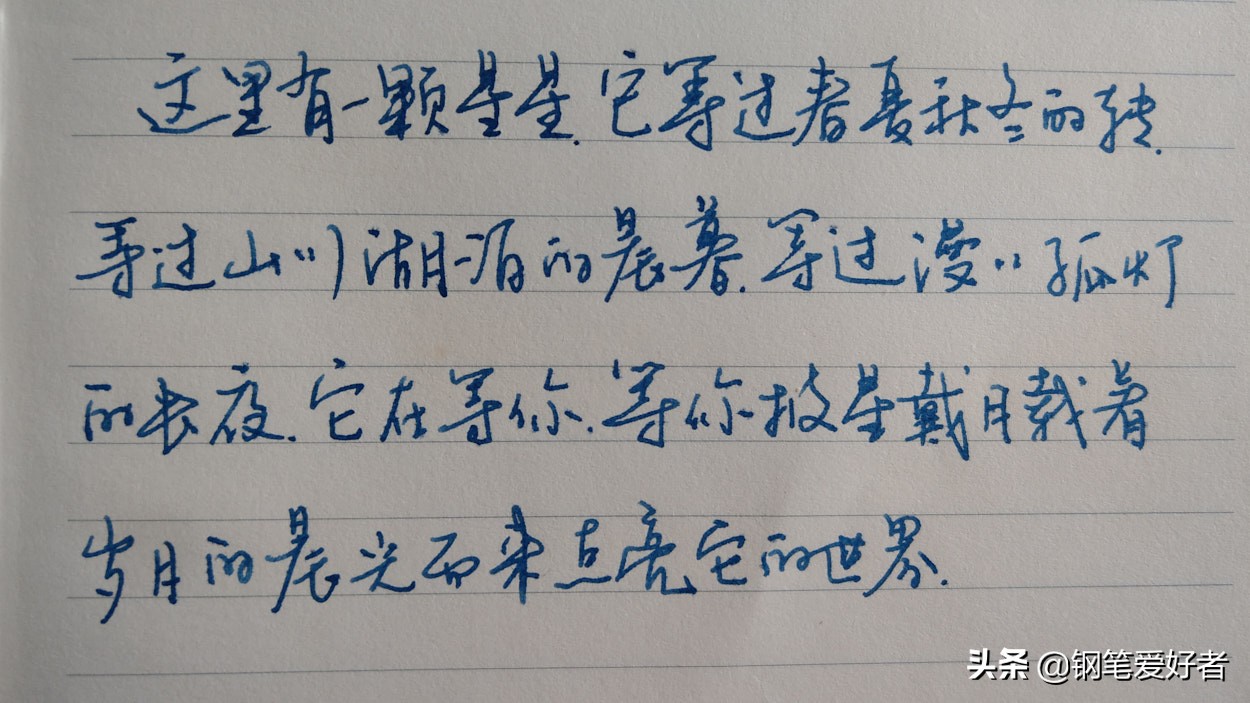 这里有一颗星星.它等过春夏秋冬的转.
等过山川湖泊的晨暮.等过漫漫孤灯
的长夜.它在等你.等你披星戴月载着
岁月的晨光而来点亮它的世界.
头条 @钢笔爱好者